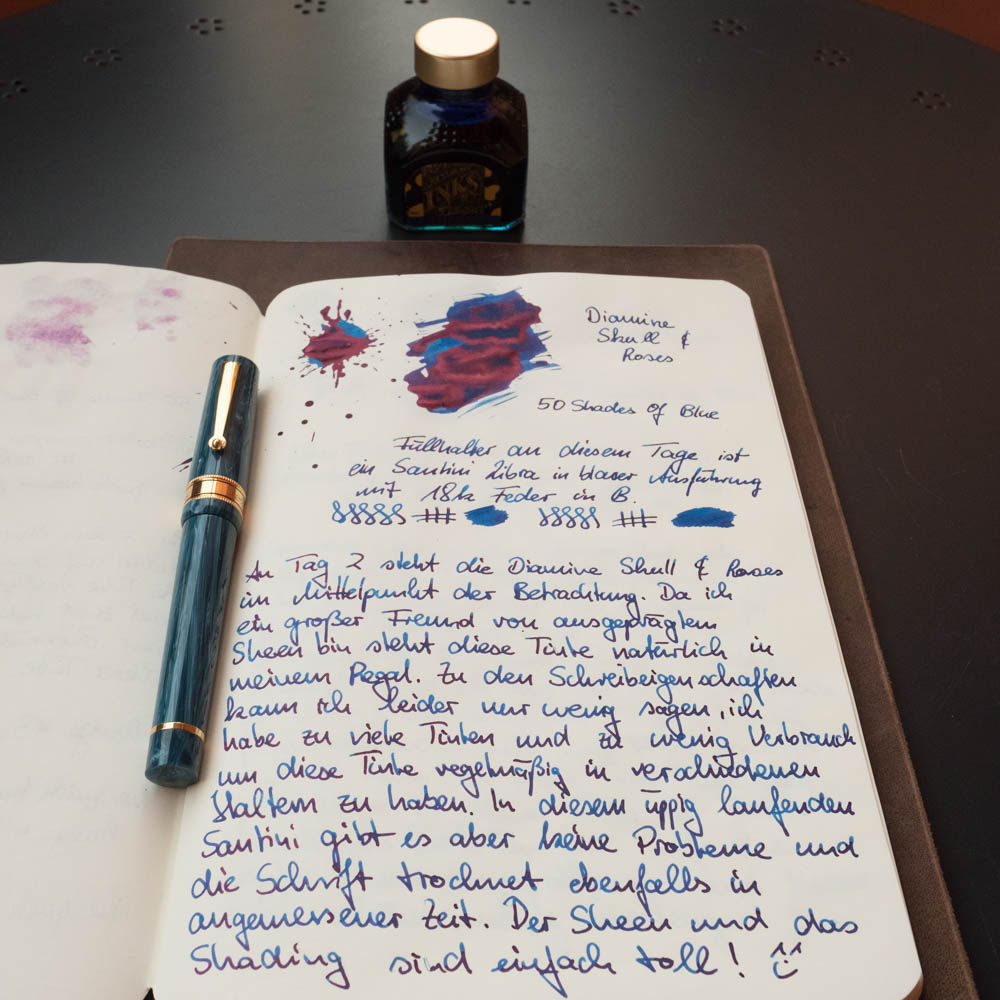 INKS
Diamine
Skull &
Roses
50 Shades of Blue
Füllhalter an diesem Tage ist
ein Santini Libra in blauer Ausführung
mit 18k Feder in B.
An Tag 2 steht die Diamine Skull & Roses
im Mittelpunkt der Betrachtung. Da ich
ein großer Freund von ausgeprägtem
Sheen bin steht diese Tinte natürlich in
meinem Regal. Zu den Schreibeigenschaften
kann ich leider nur wenig sagen, ich
habe zu viele Tinten und zu wenig Verbrauch
um diese Tinte regelmäßig in verschiedenen
Haltern zu haben. In diesem üppig laufenden
Santini gibt es aber keine Probleme und
die Schrift trocknet ebenfalls in
angemessener Zeit. Der Sheen und das
Shading sind einfach toll!